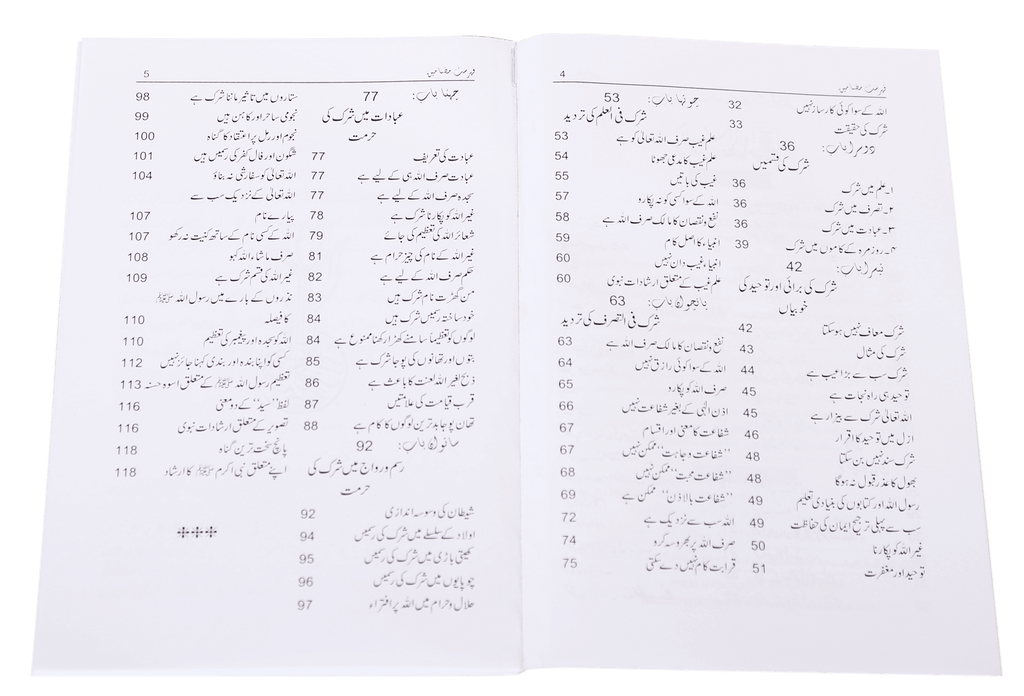 4
فہرست مضامین
اللہ کے سوا کوئی کارساز نہیں 32
شرک کی حقیقت 33
دوسرا باب: 36
شرک کی قسمیں
۱۔ علم میں شرک 36
۲۔ تصرف میں شرک 36
۳۔ عبادت میں شرک 36
۴۔ روزمرہ کے کاموں میں شرک 39
تیسرا باب: 42
شرک کی برائی اور توحید کی
خوبیاں
شرک معاف نہیں ہوسکتا 42
شرک کی مثال 43
شرک سب سے بڑا عیب ہے 44
توحید ہی راہ نجات ہے 45
اللہ تعالیٰ شرک سے بیزار ہے 45
ازل میں توحید کا اقرار 46
شرک سند نہیں بن سکتا 48
بھول کا عذر قبول نہ ہوگا 48
رسول اللہ اور کتابوں کی بنیادی تعلیم 49
سب سے پہلی ترجیح ایمان کی حفاظت 49
غیر اللہ کو پکارنا 50
توحید اور مغفرت 51
چوتھا باب: 53
شرک فی العلم کی تردید
علم غیب صرف اللہ تعالیٰ کو ہے 53
علم غیب کا مدعی جھوٹا 54
غیب کی باتیں 55
اللہ کے سوا کسی کو نہ پکارو 57
نفع و نقصان کا مالک صرف اللہ ہے 58
انبیاء کا اصل کام 59
انبیاء غیب دان نہیں 60
علم غیب کے متعلق ارشادات نبوی 60
پانچواں باب: 63
شرک فی التصرف کی تردید
نفع و نقصان کا مالک صرف اللہ ہے 63
اللہ کے سوا کوئی رازق نہیں 64
صرف اللہ کو پکارو 65
اذن الٰہی کے بغیر شفاعت نہیں 66
شفاعت کا معنی اور اقسام 67
"شفاعت وجاہت" ممکن نہیں 67
"شفاعت محبت" ممکن نہیں 68
"شفاعت بالاذن" ممکن ہے 69
اللہ سب سے نزدیک ہے 72
صرف اللہ پر بھروسہ کرو 74
قرابت کام نہیں دے سکتی 75
فہرست مضامین
5
چھٹا باب: 77
عبادات میں شرک کی
حرمت
عبادت کی تعریف 77
عبادت صرف اللہ ہی کے لیے ہے 77
سجدہ صرف اللہ کے لیے ہے 77
غیر اللہ کو پکارنا شرک ہے 78
شعائر اللہ کی تعظیم کی جائے 79
غیر اللہ کے نام کی چیز حرام ہے 81
حکم صرف اللہ کے لیے ہے 82
من گھڑت نام شرک ہیں 83
خود ساختہ رسمیں شرک ہیں 84
لوگوں کو تعظیماً سامنے کھڑا رکھنا ممنوع ہے 84
بتوں اور تھانوں کی پوجا شرک ہے 85
ذبح لغیر اللہ لعنت کا باعث ہے 86
قرب قیامت کی علامتیں 87
تھان پوجا بدترین لوگوں کا کام ہے 88
ساتواں باب: 92
رسم و رواج میں شرک کی
حرمت
شیطان کی وسوسہ اندازی 92
اولاد کے سلسلے میں شرک کی رسمیں 94
کھیتی باڑی میں شرک کی رسمیں 95
چوپایوں میں شرک کی رسمیں 96
حلال و حرام میں اللہ پر افتراء 97
ستاروں میں تاثیر ماننا شرک ہے 98
نجومی ساحر اور کاہن ہیں 99
نجوم اور رمل پر اعتقاد کا گناہ 100
شگون اور فال کفر کی رسمیں ہیں 101
اللہ تعالیٰ کو سفارشی نہ بناؤ 104
اللہ تعالیٰ کے نزدیک سب سے
پیارے نام 107
اللہ کے کسی نام کے ساتھ کنیت نہ رکھو 107
صرف ماشاء اللہ کہو 108
غیر اللہ کی قسم شرک ہے 109
نذروں کے بارے میں رسول اللہ ﷺ
کا فیصلہ 110
اللہ کو سجدہ اور پیغمبر کی تعظیم 110
کسی کو اپنا بندہ اور بندی کہنا جائز نہیں 112
تعظیم رسول اللہ ﷺ کے متعلق اسوہ حسنہ 113
لفظ "سید" کے دو معنی 116
تصویر کے متعلق ارشادات نبوی 116
پانچ سخت ترین گناہ 118
اپنے متعلق نبی اکرم ﷺ کا ارشاد 118